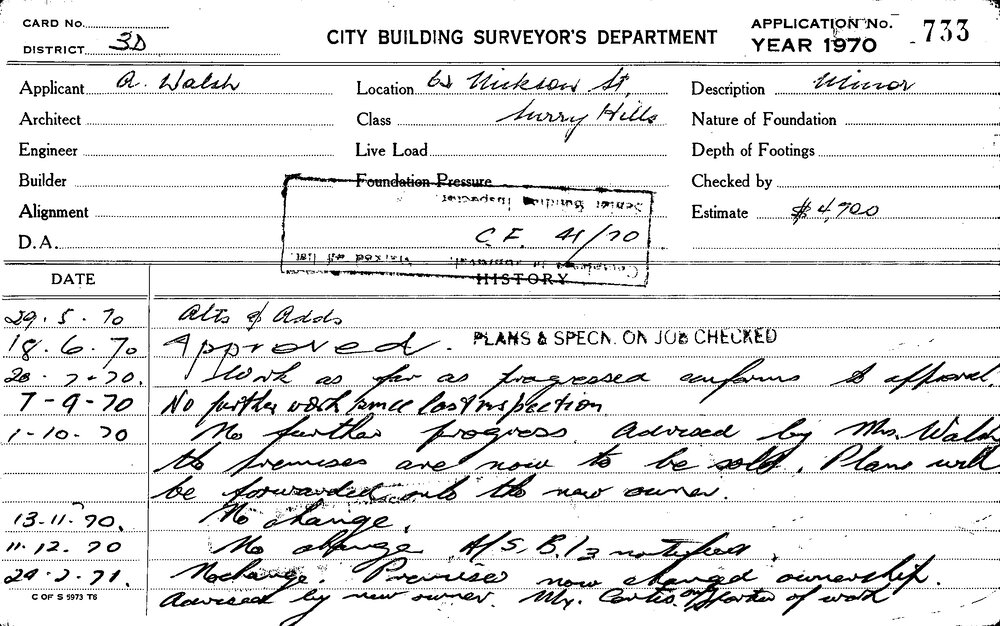 CARD No.
DISTRICT 3D
CITY BUILDING SURVEYOR'S DEPARTMENT
APPLICATION No. 733
YEAR 1970
Applicant A. Walsh
Location Nickson St,
Description Minor
Architect
Class Surry Hills
Nature of Foundation
Engineer
Live Load
Depth of Footings
Builder
Foundation Pressure
Checked by
Senior Building Inspector.
Alignment
Estimate $4,700
D.A.
C.F. 41/70
DATE
HISTORY
29.5.70 Alts & Adds
18.6.70 Approved. PLANS & SPECN. ON JOB CHECKED
20-7-70. Work as far as progressed conforms to approval.
7-9-70 No further work since last inspection
1-10-70 No further progress. Advised by Mrs. Walsh
the premises are now to be sold. Plans will
be forwarded onto the new owner.
13-11-70. No change.
11.12.70 No change A/S.B.I notified.
No change. Premises now changed ownership.
C OF S 5973 T6
Advised by new owner. Mr. of work